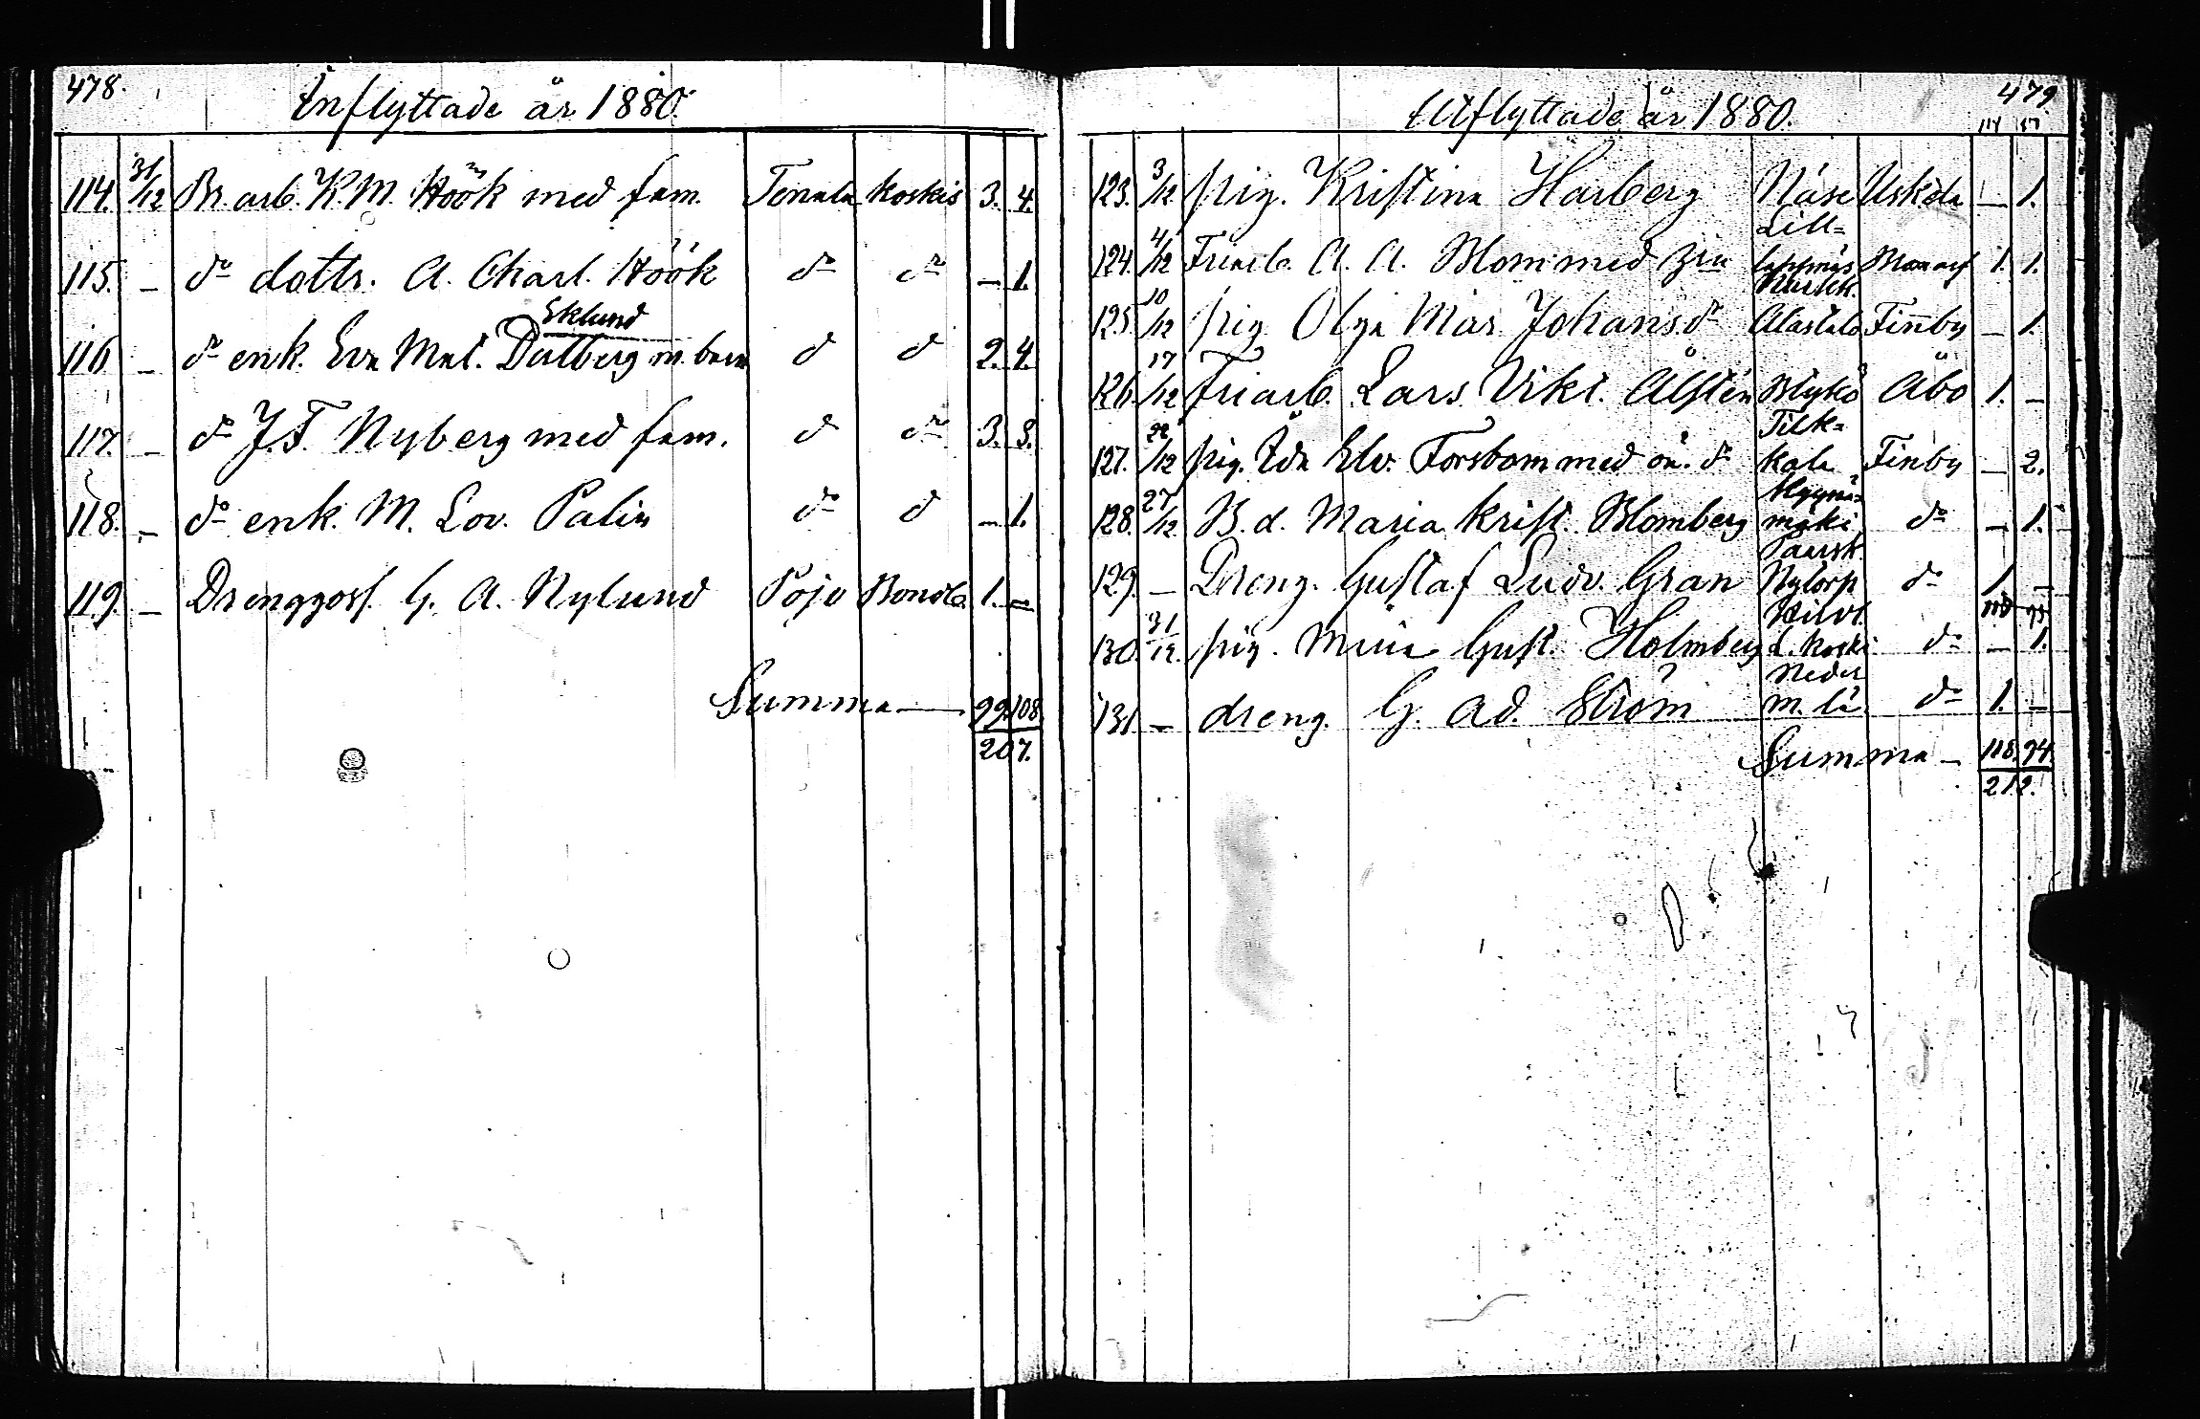 478.
Inflyttade år 1880.
114. 31/12 Br. arb. K. M. Höök med fam. Tenala Koskis 3. 4.
115. – do dottr. A. Charl. Höök do do – 1.
Eklund
116 – do enk. Eva Mat. Dalberg m. barn d d 2. 4.
117. – do J. F. Nyberg med fam. d do 3. 3.
118. – do enk. M. Lov. Palin do d – 1.
119. – Drenggoss. G. A. Nylund Pojo Bondb. 1. –
Summa — 99. 108.
207.
479
Utflyttade år 1880.
117 87
123. 3/12 pig. Kristina Harberg Näse Uskela – 1.
Lill=
124. 4/12 Friarb. A. A. Blom med 1. 1.
125 10/12 pig Olga Mar. Johans.do Alastalo Finby – 1.
126. 17/12 Friarb. Lars Vikt. Alstén Mykö Åbo 1. –
Tilk=
127. 22/12 pig. Ida Elv. Forsbom med oä. do kala Finby – 2.
128. 27/12 B. d. Maria Krist. Blomberg mäki do – 1.
129. – Dreng. Gustaf Ludv. Gran Nytorp do 1. –
130. 31/12. pig. Mina Gust. Holmberg L. Koski do – 1.
Neder
131 – dreng. G. Ad. Ström do 1. –
Summa – 118. 94.
212.